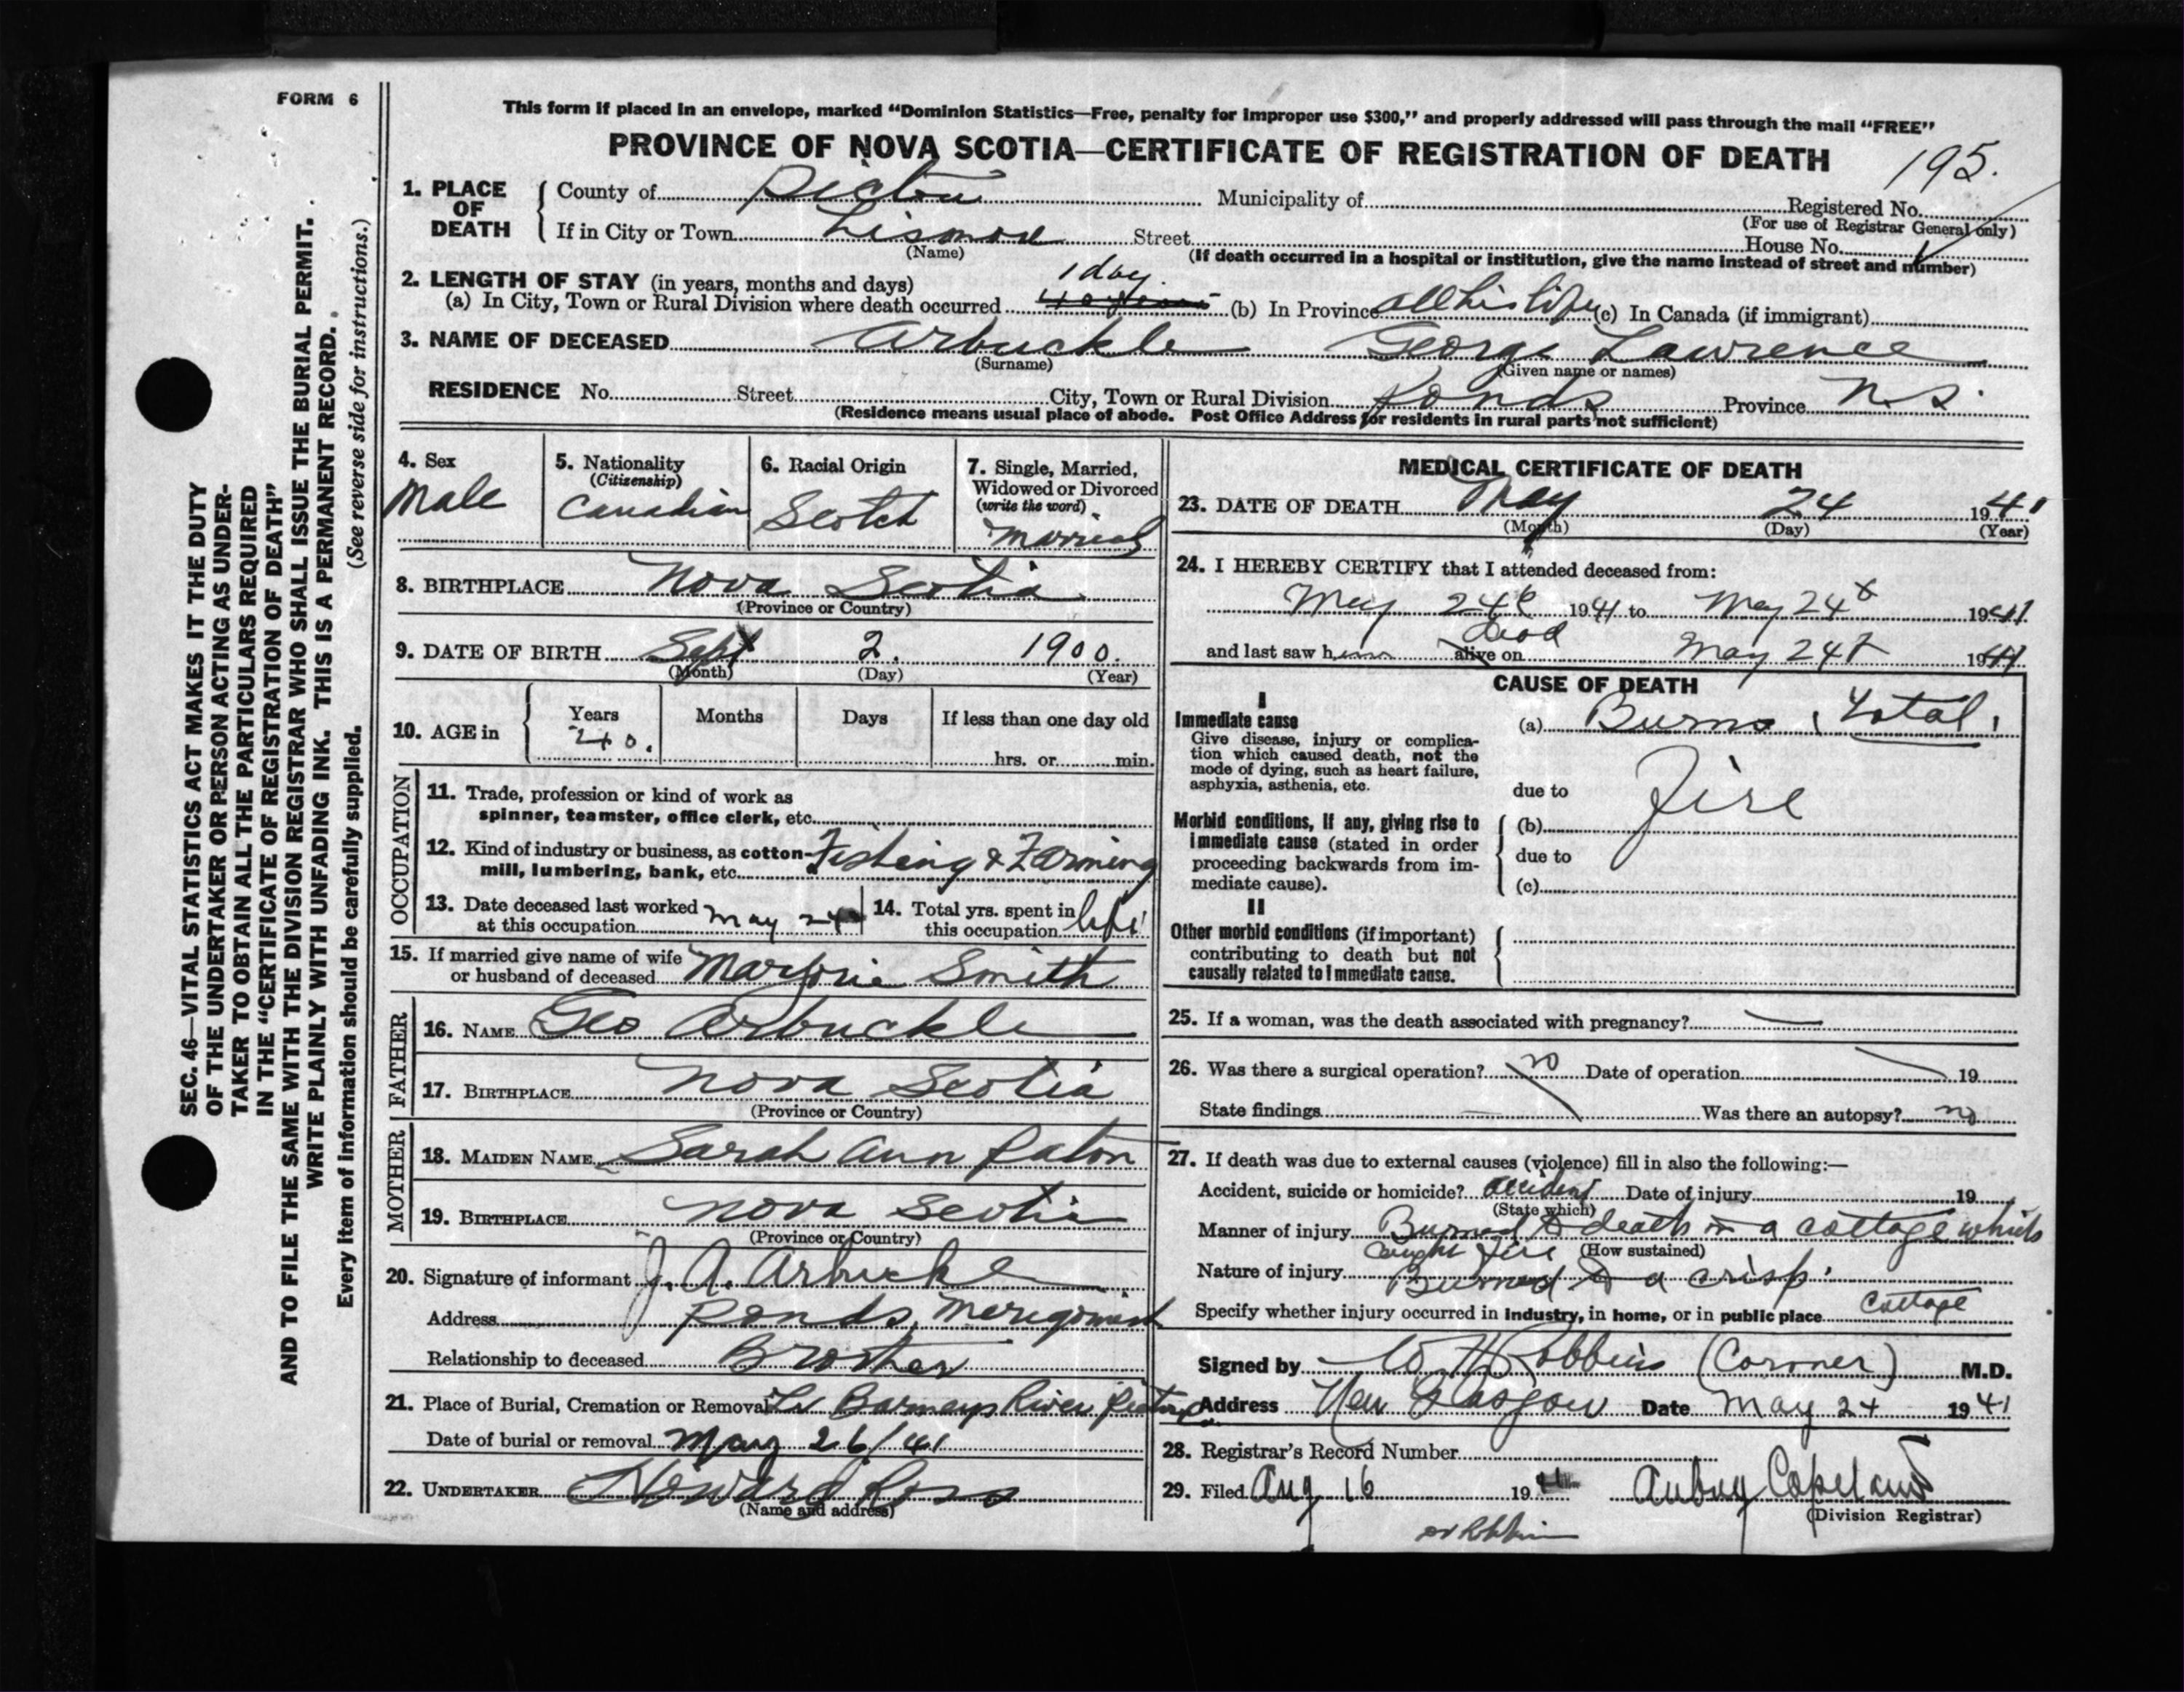 FORM 6
This form if placed in an envelope, marked "Dominion Statistics—Free, penalty for improper use $300," and properly addressed will pass through the mail "FREE"
PROVINCE OF NOVA SCOTIA—CERTIFICATE OF REGISTRATION OF DEATH
195.
1. PLACE OF DEATH
County of Pictou Municipality of Registered No.
(For use of Registrar General only)
If in City or Town Lismore Street House No.
(Name) (If death occurred in a hospital or institution, give the name instead of street and number)
2. LENGTH OF STAY (in years, months and days) 1 day.
(a) In City, Town or Rural Division where death occurred 40 years (b) In Province all his life (c) In Canada (if immigrant)
3. NAME OF DECEASED Arbuckle George Lawrence
(Surname) (Given name or names)
RESIDENCE No. Street City, Town or Rural Division Ponds Province N.S.
(Residence means usual place of abode. Post Office Address for residents in rural parts not sufficient)
4. Sex Male
5. Nationality
(Citizenship)
Canadian
6. Racial Origin
Scotch
7. Single, Married,
Widowed or Divorced
(write the word)
Married
8. BIRTHPLACE Nova Scotia
(Province or Country)
9. DATE OF BIRTH Sept 2. 1900.
(Month) (Day) (Year)
10. AGE in Years Months Days If less than one day old
40. hrs. or min.
OCCUPATION
11. Trade, profession or kind of work as
spinner, teamster, office clerk, etc.
12. Kind of industry or business, as cotton-
mill, lumbering, bank, etc. Fishing & Farming
13. Date deceased last worked
at this occupation May 24
14. Total yrs. spent in
this occupation life
15. If married give name of wife
or husband of deceased Marjorie Smith
FATHER
16. NAME Geo Arbuckle
17. BIRTHPLACE Nova Scotia
(Province or Country)
MOTHER
18. MAIDEN NAME Sarah Ann Paton
19. BIRTHPLACE Nova Scotia
(Province or Country)
20. Signature of informant J. A. Arbuckle
Address Ponds, Merigomish
Relationship to deceased Brother
21. Place of Burial, Cremation or Removal Barneys River Pictou Co
Date of burial or removal May 26/41
22. UNDERTAKER Howard Ross
(Name and address)
MEDICAL CERTIFICATE OF DEATH
23. DATE OF DEATH May 24 1941
(Month) (Day) (Year)
24. I HEREBY CERTIFY that I attended deceased from:
May 24th 1941 to May 24th 1941
Dead
and last saw him alive on May 24th 1941
CAUSE OF DEATH
I
Immediate cause
Give disease, injury or complica-
tion which caused death, not the
mode of dying, such as heart failure,
asphyxia, asthenia, etc.
(a) Burns, total,
due to Fire
Morbid conditions, if any, giving rise to
immediate cause (stated in order
proceeding backwards from im-
mediate cause).
(b)
due to
(c)
II
Other morbid conditions (if important)
contributing to death but not
causally related to immediate cause.
25. If a woman, was the death associated with pregnancy?
26. Was there a surgical operation? no Date of operation 19
State findings Was there an autopsy? no
27. If death was due to external causes (violence) fill in also the following:—
Accident, suicide or homicide? Accident Date of injury 19
(State which)
Manner of injury Burned to death in a cottage which
caught fire (How sustained)
Nature of injury Burned to a crisp.
Specify whether injury occurred in industry, in home, or in public place Cottage
Signed by W H Robbins (Coroner) M.D.
Address New Glasgow Date May 24 1941
28. Registrar's Record Number
29. Filed Aug 16 1941 Aubrey Copeland
(Division Registrar)
Dr Robbins
SEC. 46—VITAL STATISTICS ACT MAKES IT THE DUTY
OF THE UNDERTAKER OR PERSON ACTING AS UNDER-
TAKER TO OBTAIN ALL THE PARTICULARS REQUIRED
IN THE "CERTIFICATE OF REGISTRATION OF DEATH"
AND TO FILE THE SAME WITH THE DIVISION REGISTRAR WHO SHALL ISSUE THE BURIAL PERMIT.
WRITE PLAINLY WITH UNFADING INK. THIS IS A PERMANENT RECORD.
Every item of information should be carefully supplied. (See reverse side for instructions.)